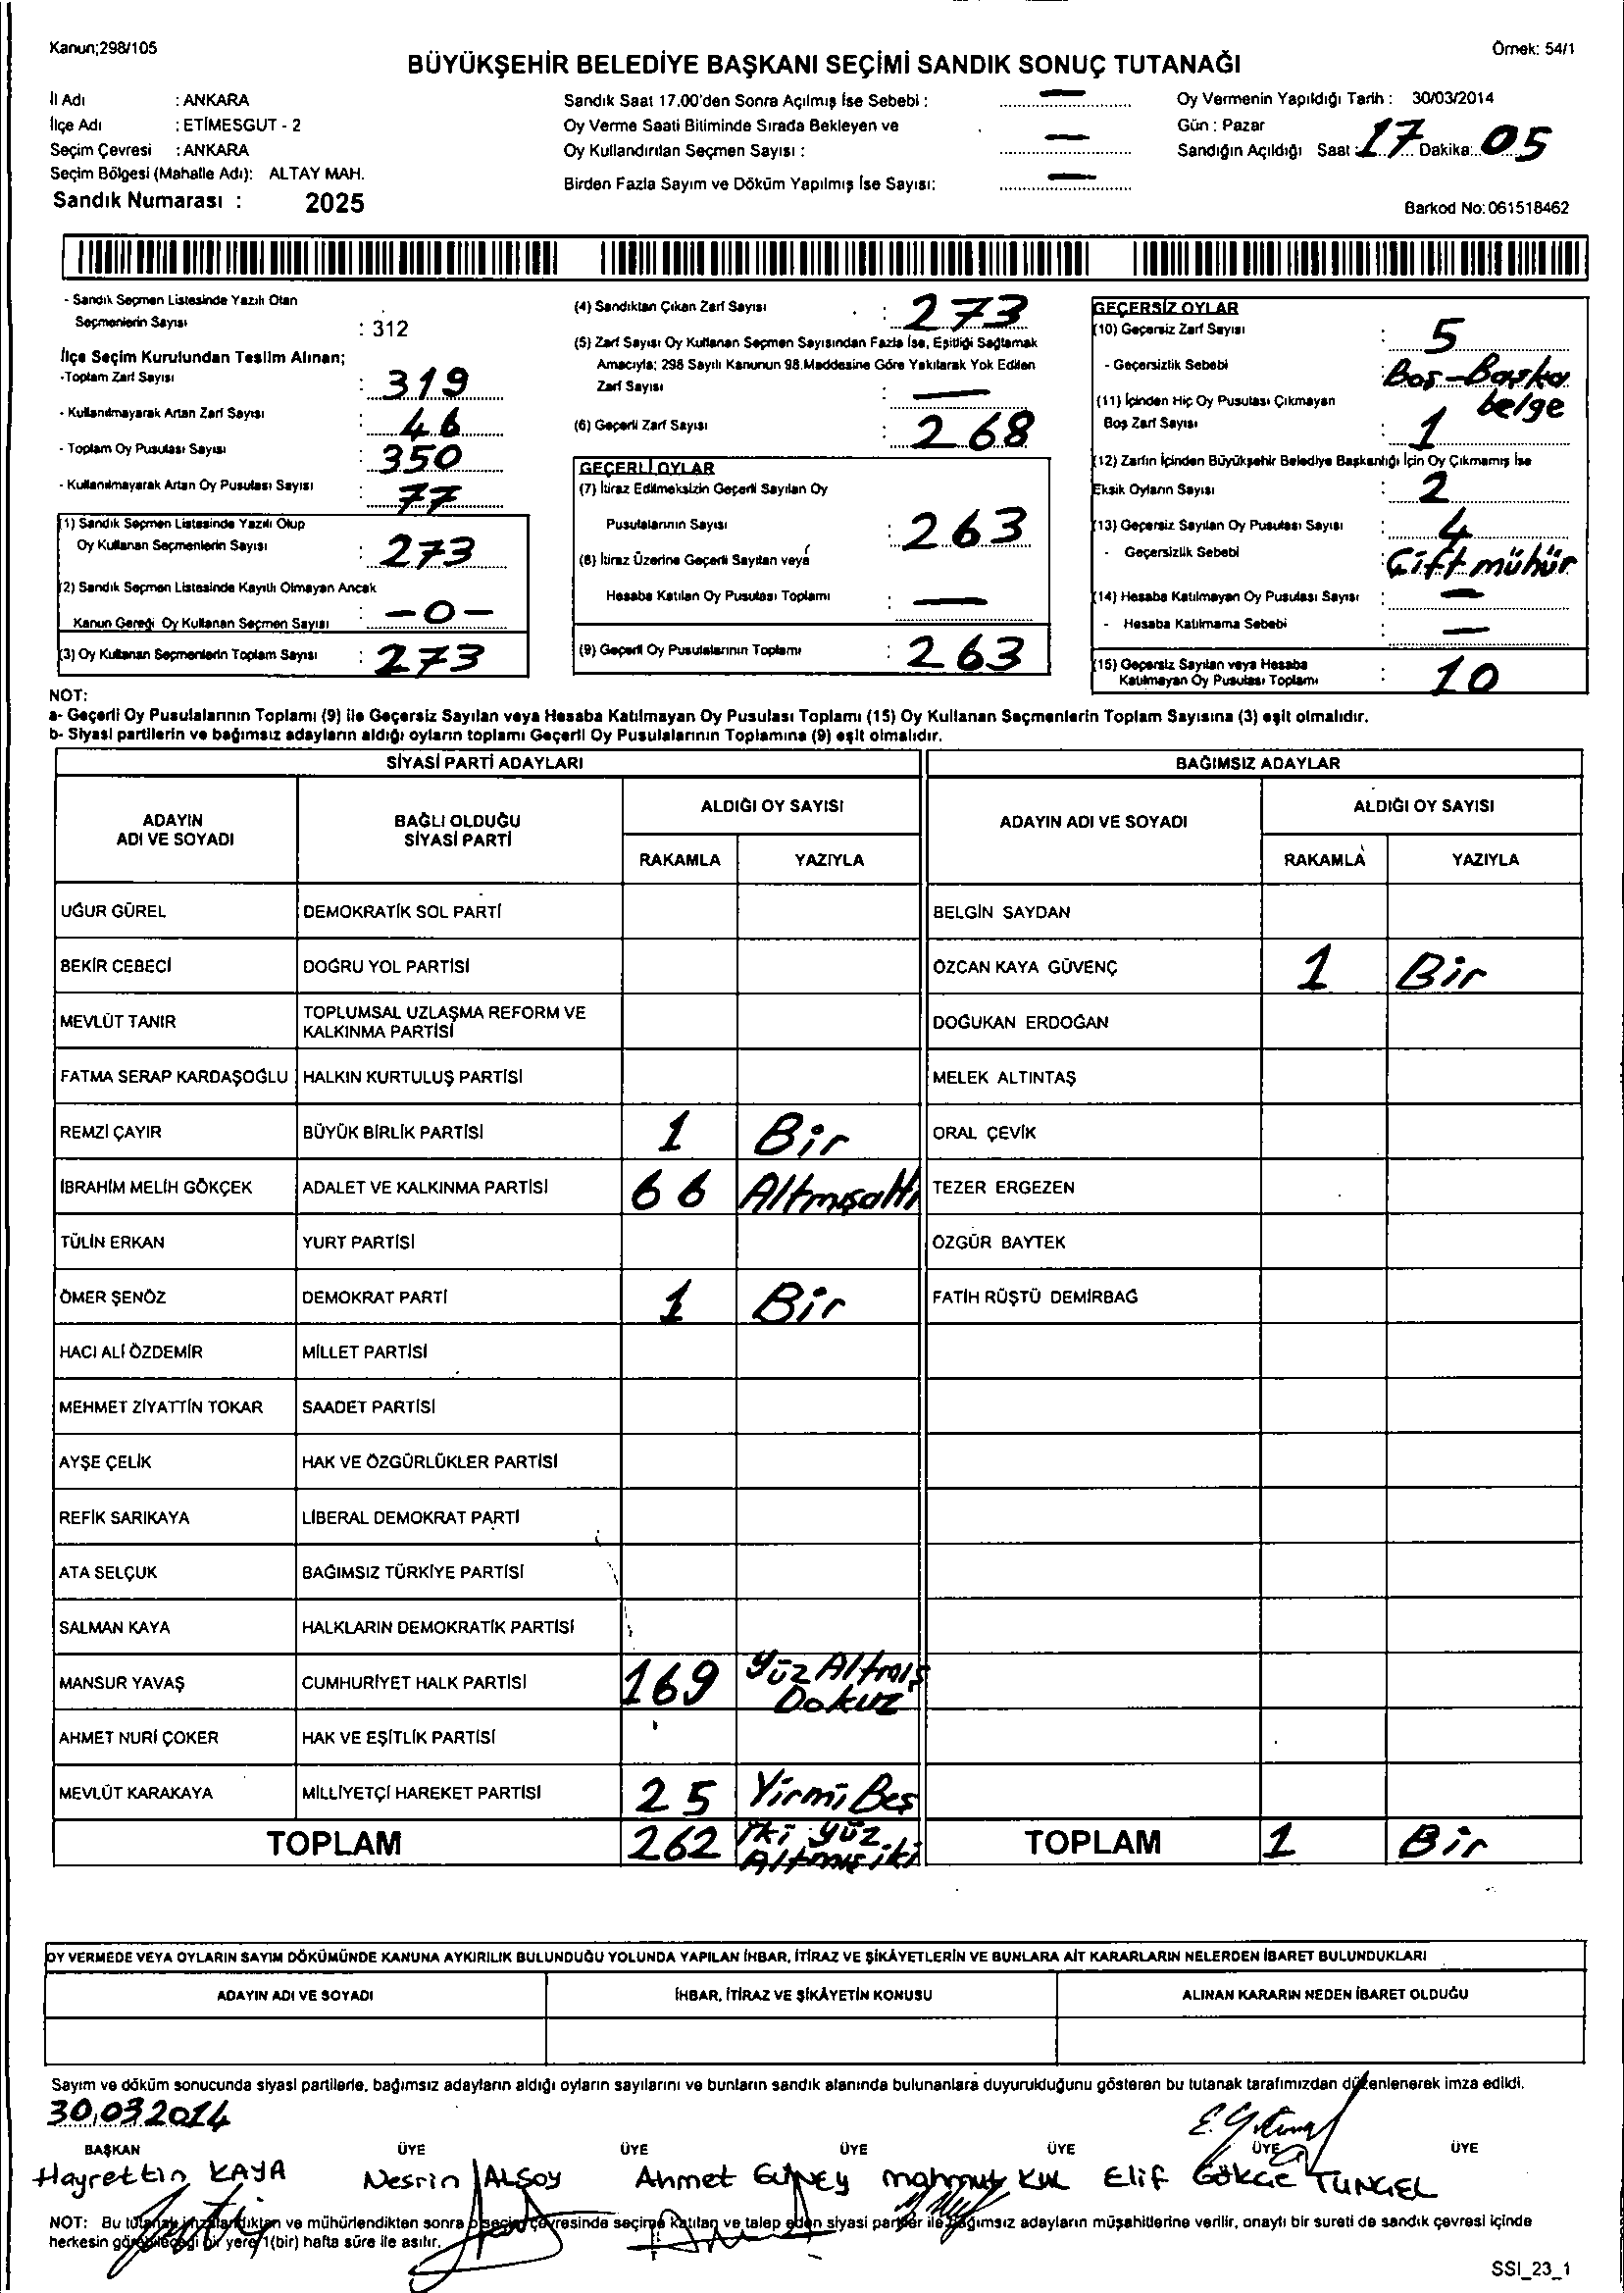 Kanun;298/105
Örnek: 54/1
BÜYÜKŞEHİR BELEDİYE BAŞKANI SEÇİMİ SANDIK SONUÇ TUTANAĞI
İl Adı : ANKARA
İlçe Adı : ETİMESGUT - 2
Seçim Çevresi : ANKARA
Seçim Bölgesi (Mahalle Adı): ALTAY MAH.
Sandık Numarası : 2025
Sandık Saat 17.00'den Sonra Açılmış İse Sebebi : —
Oy Verme Saati Bitiminde Sırada Bekleyen ve
Oy Kullandırılan Seçmen Sayısı : —
Birden Fazla Sayım ve Döküm Yapılmış İse Sayısı: —
Oy Vermenin Yapıldığı Tarih : 30/03/2014
Gün : Pazar
Sandığın Açıldığı Saat : 17 Dakika: 05
Barkod No: 061518462
- Sandık Seçmen Listesinde Yazılı Olan
Seçmenlerin Sayısı : 312
İlçe Seçim Kurulundan Teslim Alınan;
-Toplam Zarf Sayısı : 319
- Kullanılmayarak Artan Zarf Sayısı : 46
- Toplam Oy Pusulası Sayısı : 350
- Kullanılmayarak Artan Oy Pusulası Sayısı : 77
(1) Sandık Seçmen Listesinde Yazılı Olup
Oy Kullanan Seçmenlerin Sayısı : 273
(2) Sandık Seçmen Listesinde Kayıtlı Olmayan Ancak
Kanun Gereği Oy Kullanan Seçmen Sayısı : -0-
(3) Oy Kullanan Seçmenlerin Toplam Sayısı : 273
(4) Sandıktan Çıkan Zarf Sayısı : 273
(5) Zarf Sayısı Oy Kullanan Seçmen Sayısından Fazla İse, Eşitliği Sağlamak
Amacıyla; 298 Sayılı Kanunun 98.Maddesine Göre Yakılarak Yok Edilen
Zarf Sayısı : —
(6) Geçerli Zarf Sayısı : 268
GEÇERLİ OYLAR
(7) İtiraz Edilmeksizin Geçerli Sayılan Oy
Pusulalarının Sayısı : 263
(8) İtiraz Üzerine Geçerli Sayılan veya
Hesaba Katılan Oy Pusulası Toplamı : —
(9) Geçerli Oy Pusulalarının Toplamı : 263
GEÇERSİZ OYLAR
(10) Geçersiz Zarf Sayısı : 5
- Geçersizlik Sebebi : Boş-Başka
belge
(11) İçinden Hiç Oy Pusulası Çıkmayan
Boş Zarf Sayısı : 1
(12) Zarfın İçinden Büyükşehir Belediye Başkanlığı İçin Oy Çıkmamış İse
Eksik Oyların Sayısı : 2
(13) Geçersiz Sayılan Oy Pusulası Sayısı : 4
- Geçersizlik Sebebi : Çift mühür
(14) Hesaba Katılmayan Oy Pusulası Sayısı : —
- Hesaba Katılmama Sebebi : —
(15) Geçersiz Sayılan veya Hesaba
Katılmayan Oy Pusulası Toplamı : 10
NOT:
a- Geçerli Oy Pusulalarının Toplamı (9) ile Geçersiz Sayılan veya Hesaba Katılmayan Oy Pusulası Toplamı (15) Oy Kullanan Seçmenlerin Toplam Sayısına (3) eşit olmalıdır.
b- Siyasi partilerin ve bağımsız adayların aldığı oyların toplamı Geçerli Oy Pusulalarının Toplamına (9) eşit olmalıdır.
SİYASİ PARTİ ADAYLARI
ADAYIN
ADI VE SOYADI
BAĞLI OLDUĞU
SİYASİ PARTİ
ALDIĞI OY SAYISI
RAKAMLA YAZIYLA
UĞUR GÜREL DEMOKRATİK SOL PARTİ
BEKİR CEBECİ DOĞRU YOL PARTİSİ
MEVLÜT TANIR TOPLUMSAL UZLAŞMA REFORM VE
KALKINMA PARTİSİ
FATMA SERAP KARDAŞOĞLU HALKIN KURTULUŞ PARTİSİ
REMZİ ÇAYIR BÜYÜK BİRLİK PARTİSİ 1 Bir
İBRAHİM MELİH GÖKÇEK ADALET VE KALKINMA PARTİSİ 66 Altmışaltı
TÜLİN ERKAN YURT PARTİSİ
ÖMER ŞENÖZ DEMOKRAT PARTİ 1 Bir
HACI ALİ ÖZDEMİR MİLLET PARTİSİ
MEHMET ZİYATTİN TOKAR SAADET PARTİSİ
AYŞE ÇELİK HAK VE ÖZGÜRLÜKLER PARTİSİ
REFİK SARIKAYA LİBERAL DEMOKRAT PARTİ
ATA SELÇUK BAĞIMSIZ TÜRKİYE PARTİSİ
SALMAN KAYA HALKLARIN DEMOKRATİK PARTİSİ
MANSUR YAVAŞ CUMHURİYET HALK PARTİSİ 169 Yüz Altmış
Dokuz
AHMET NURİ ÇOKER HAK VE EŞİTLİK PARTİSİ
MEVLÜT KARAKAYA MİLLİYETÇİ HAREKET PARTİSİ 25 Yirmi Beş
TOPLAM 262 İki yüz
Altmış iki
BAĞIMSIZ ADAYLAR
ADAYIN ADI VE SOYADI
ALDIĞI OY SAYISI
RAKAMLA YAZIYLA
BELGİN SAYDAN
ÖZCAN KAYA GÜVENÇ 1 Bir
DOĞUKAN ERDOĞAN
MELEK ALTINTAŞ
ORAL ÇEVİK
TEZER ERGEZEN
ÖZGÜR BAYTEK
FATİH RÜŞTÜ DEMİRBAĞ
TOPLAM 1 Bir
OY VERMEDE VEYA OYLARIN SAYIM DÖKÜMÜNDE KANUNA AYKIRILIK BULUNDUĞU YOLUNDA YAPILAN İHBAR, İTİRAZ VE ŞİKÂYETLERİN VE BUNLARA AİT KARARLARIN NELERDEN İBARET BULUNDUKLARI
ADAYIN ADI VE SOYADI
İHBAR, İTİRAZ VE ŞİKÂYETİN KONUSU
ALINAN KARARIN NEDEN İBARET OLDUĞU
Sayım ve döküm sonucunda siyasi partilerle, bağımsız adayların aldığı oyların sayılarını ve bunların sandık alanında bulunanlara duyurulduğunu gösteren bu tutanak tarafımızdan düzenlenerek imza edildi.
30.03.2014
BAŞKAN ÜYE ÜYE ÜYE ÜYE ÜYE ÜYE
Hayrettin KAYA Nesrin ALSOY Ahmet GÜNEY Mahmut KUL Elif GÖKCE TUNCEL
NOT: Bu tutanak imzalandıktan ve mühürlendikten sonra o seçim çevresinde seçime katılan ve talep eden siyasi partiler ile bağımsız adayların müşahitlerine verilir, onaylı bir sureti de sandık çevresi içinde
herkesin görebileceği bir yere 1(bir) hafta süre ile asılır.
SSI_23_1